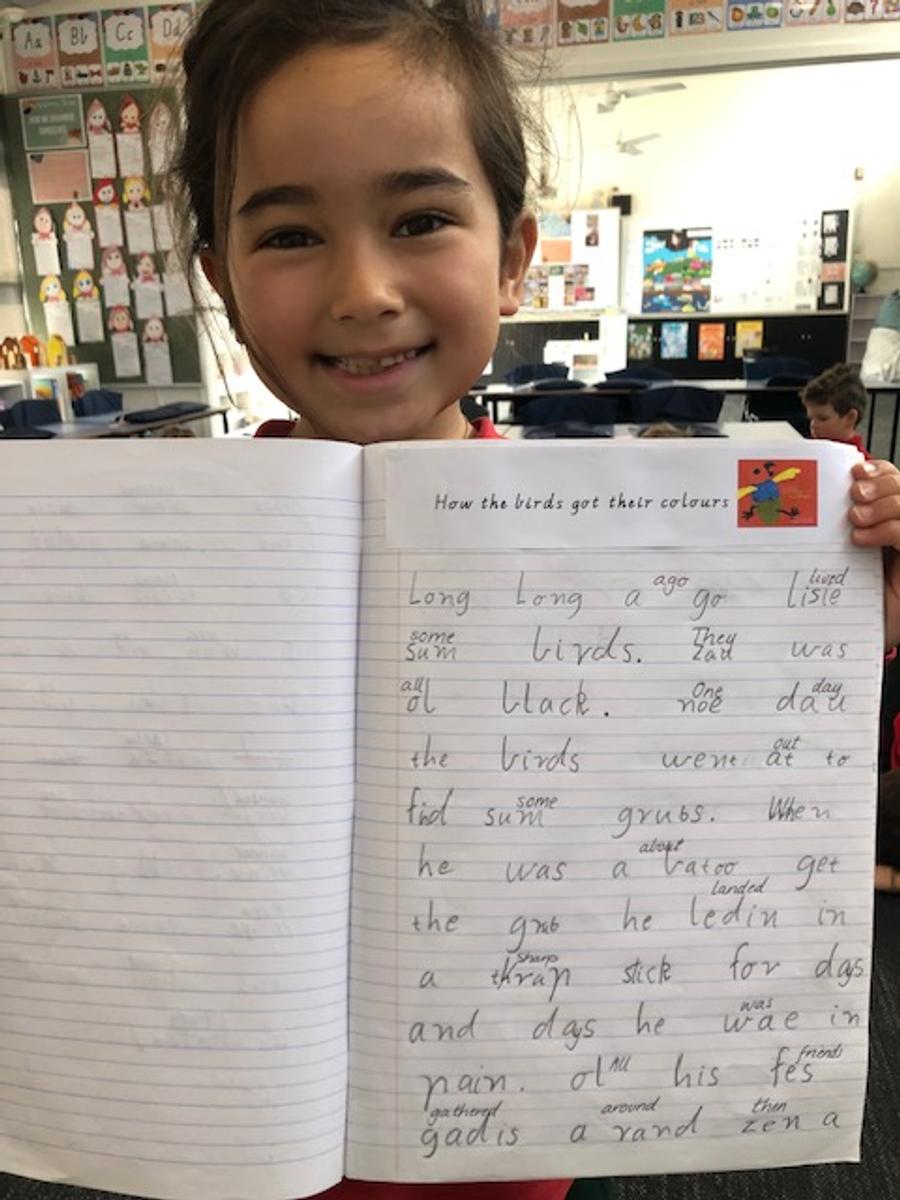 Aa Bb Cc Dd
How the birds got their colours
ago lived
Long Long a go lisle
some They
sum birds. Zau was
all One day
ol black. noe dau
out
the birds went at to
some
fid sum grubs. When
about
he was a batoo get
landed
the grub he ledin in
sharp
a thrap stick for days
was
and days he wae in
All friends
pain. ol his fes
gathered around then
gad is a rand zen a